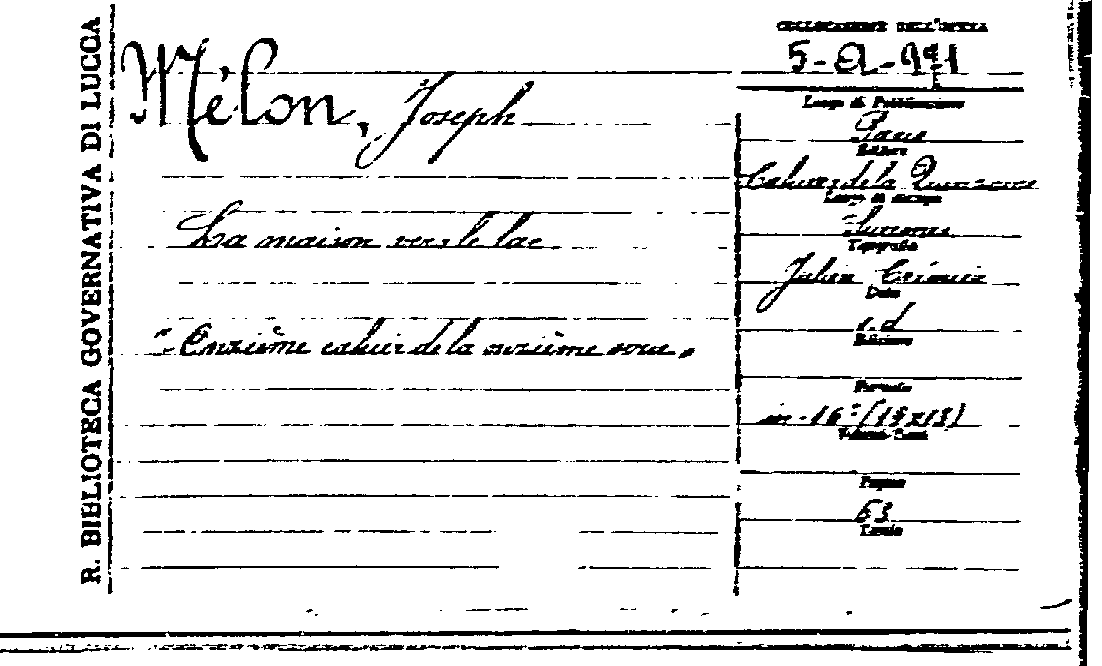 R. BIBLIOTECA GOVERNATIVA DI LUCCA
COLLOCAZIONE DELL'OPERA
Mélon, Joseph
Luogo di Pubblicazione
Paris
Editore
Cahiers de la Quinzaine
Luogo di stampa
Suresnes
La maison vers le lac
Tipografia
Julien Crémieu
Data
s. d
"Onzième cahier de la onzième série"
Edizione
Formato
in-16°
Volumi-Tomi
Pagine
63
Tavole